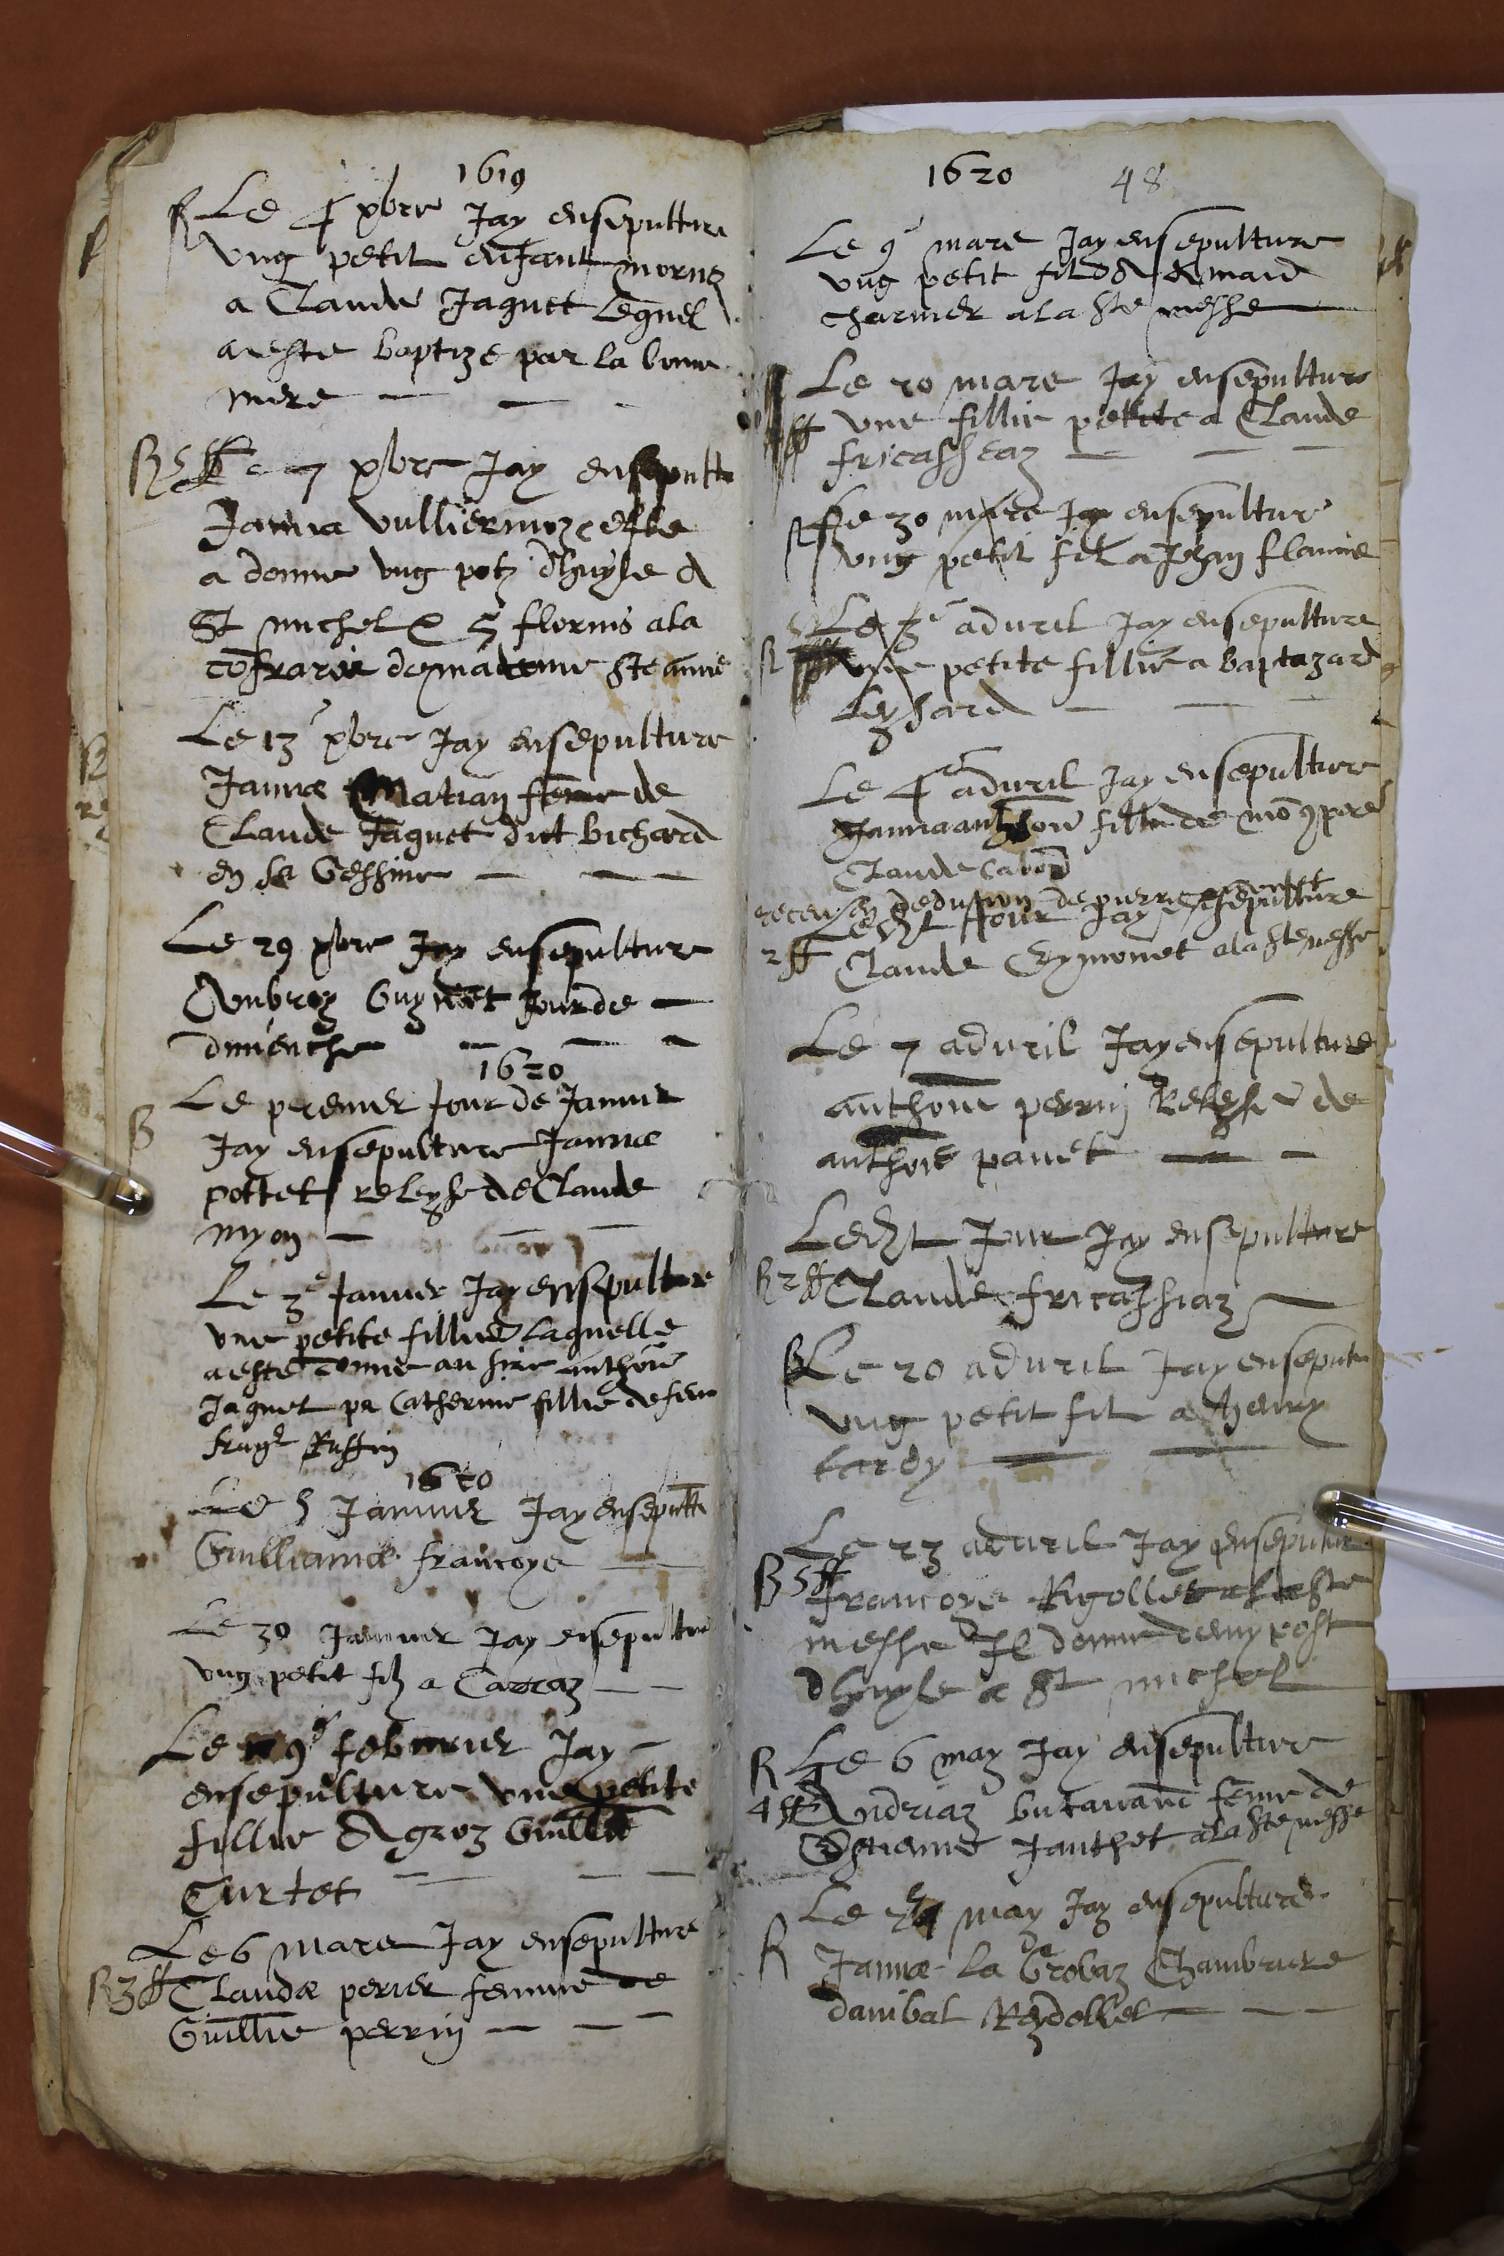 1619
R Le 4 xbre Jay ensepulture
vng petit enfant
a Claude Jaquet lequel
a este baptize par la bonne
mere
R 5 ff Le 7 xbre Jay ensepultu
Janna vulliermoz
a donne vng potz dhuyle A
St michel 5 florins a la
cofrarie de madame Ste anne
Le 13 xbre Jay ensepulture
Janna Matian feme de
Claude Jaquet dict bichard
en sa Gessine
Le 29 xbre Jay ensepulture
Anbroz Guynet Jour de
dimenche
1620
R Le premier Jour de Janvier
Jay ensepulture Janna
pottet releyse de Claude
myon
Le 3e Janvier Jay ensepulture
vne petite fillie laquelle
a este donne au sire anthoine
Jaquet pr Catherine fillie de feu
Ruffin
1620
Le 5 Janvier Jay ensepultu
Guilliama francoye
Le 30 Janvier Jay ensepulture
vng petit filz a Carraz
Le 9e febvrier Jay
ensepulture vne petite
fillie A groz Guillie
Curtet
Le 6 mare Jay ensepulture
R 3 ff Clauda perier femme de
Guillie perrin
1620 48
Le 9e mare Jay ensepulture
vng petit filz
charmer a la Ste messe
Le 20 mare Jay ensepulture
ff vne fillie petite a Claude
fricasseaz
R Le 30 mare Jay ensepulture
vng petit fil a Jehan
Le 3e advril Jay ensepulture
R vne petite fillie a baptazard
Leyzard
Le 4e advril Jay ensepulture
Janna fillie de mo
Claude
de pierre
Jour Jay ensepulture
2 ff Claude Eymonet a la Ste messe
Le 7 advril Jay ensepulture
anthoine perrin Releyse de
anthoine panet
Ledt Jour Jay ensepulture
R 2 ff Claude fricassiaz
R Le 20 advril Jay ensepultu
vng petit fil a henry
tardy
Le 23 advril Jay ensepultur
R 5 ff francoye Rigollet a la Ste
messe Il donne demy post
dhuyle a St michel
R Le 6 may Jay ensepulture
4 ff Andriaz feme de
Estienne Janthet a la Ste messe
Le may Jay ensepulture
R Janna la Grobaz Chambriere
danibal Reydellet